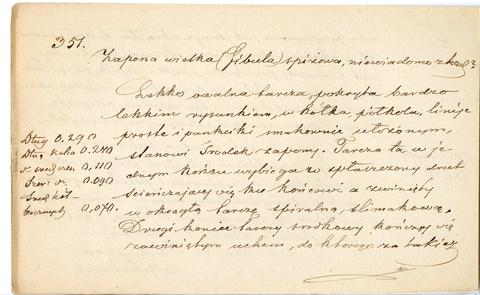 351.
Zapona wielka (Fibula) spiżowa, niewiadomo zkąd?
Lekko owalna tarcza, pokryta bardzo
lekkim rysunkiem, w kółka, półkola, linije
proste i punkciki smakownie ułożonym,
stanowi środek zapony. Tarcza ta w je-
dnym końcu wybiega w spłaszczony drut
ścieńczający się ku końcowi a zwinięty
w okrągłą tarczę spiralną, ślimakową.
Drugi koniec tarczy środkowej kończy się
zawiniętym uchem, do którego za takiez
Dług. 0.290
Dług. 0.240
0.110
Szer. 0.090
0.070.